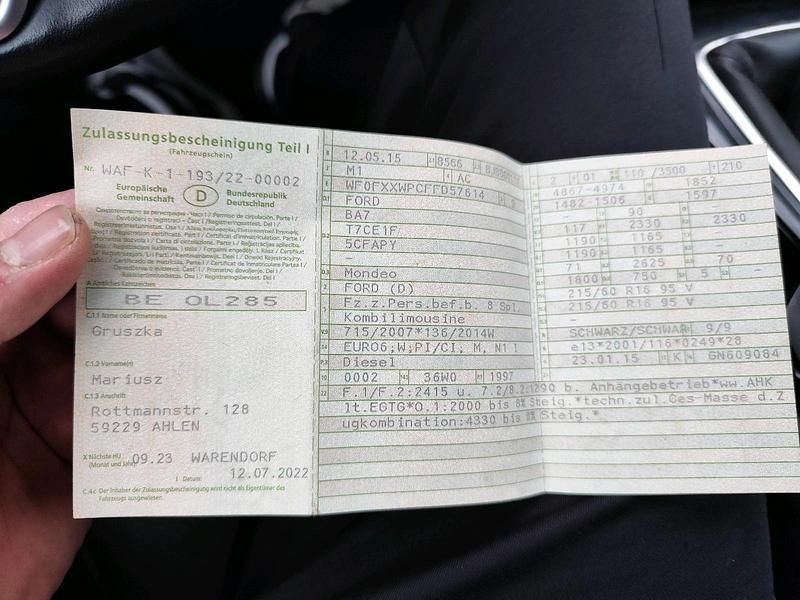 Zulassungsbescheinigung Teil I
(Fahrzeugschein)
Nr. WAF-K-1-193/22-00002
Europäische Gemeinschaft
D
Bundesrepublik Deutschland
A Amtliches Kennzeichen
BE OL285
C.1.1 Name oder Firmenname
Gruszka
C.1.2 Vorname(n)
Mariusz
C.1.3 Anschrift
Rottmannstr. 128
59229 AHLEN
X Nächste HU (Monat und Jahr) 09.23 WARENDORF
I Datum: 12.07.2022
C.4c Der Inhaber der Zulassungsbescheinigung wird nicht als Eigentümer des Fahrzeugs ausgewiesen.
B 12.05.15 8566
M1 AC
WF0FXXWPCFFD57614
D.1 FORD
BA7
D.2 T7CE1F
5CFAPY
–
D.3 Mondeo
2 FORD (D)
5 Fz.z.Pers.bef.b. 8 Spl.
Kombilimousine
V.9 715/2007*136/2014W
14 EURO6;W;PI/CI; M, N1 I
P.3 Diesel
10 0002 36W0 1997
22 F.1/F.2:2415 u. 7.2/8.2:1290 b. Anhängebetrieb*ww.AHK
lt.EGTG*O.1:2000 bis 8% Steig.*techn.zul.Ges-Masse d.Z
ugkombination:4330 bis 8% Steig.*
2 01 110 /3500 210
4867-4974 1852
1482-1506 1597
90
117 2330 2330
1190 1165
1190 1165
71 2625 70
1800 750 5 –
215/60 R16 95 V
215/60 R16 95 V
SCHWARZ/SCHWAR 9/9
e13*2001/116*0249*28
23.01.15 K GN609084